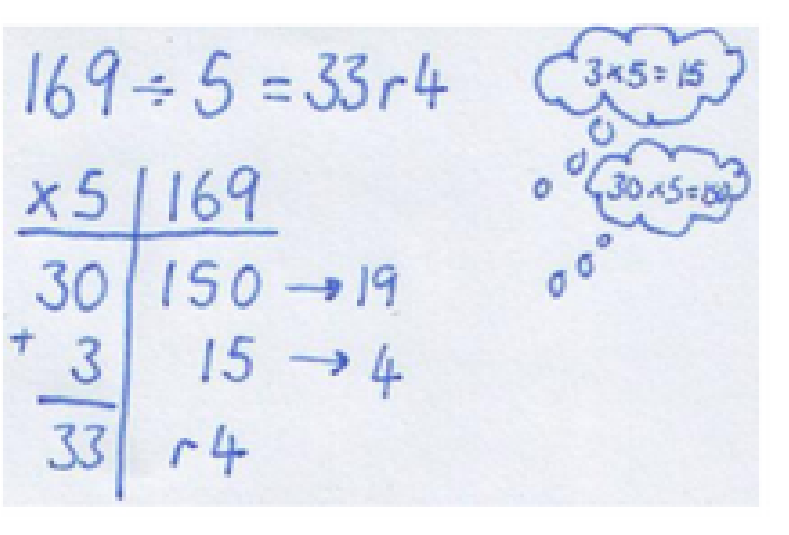 169 ÷ 5 = 33 r 4
3 × 5 = 15
30 × 5 = 150
× 5 | 169
30 | 150 → 19
+ 3 | 15 → 4
33 | r 4